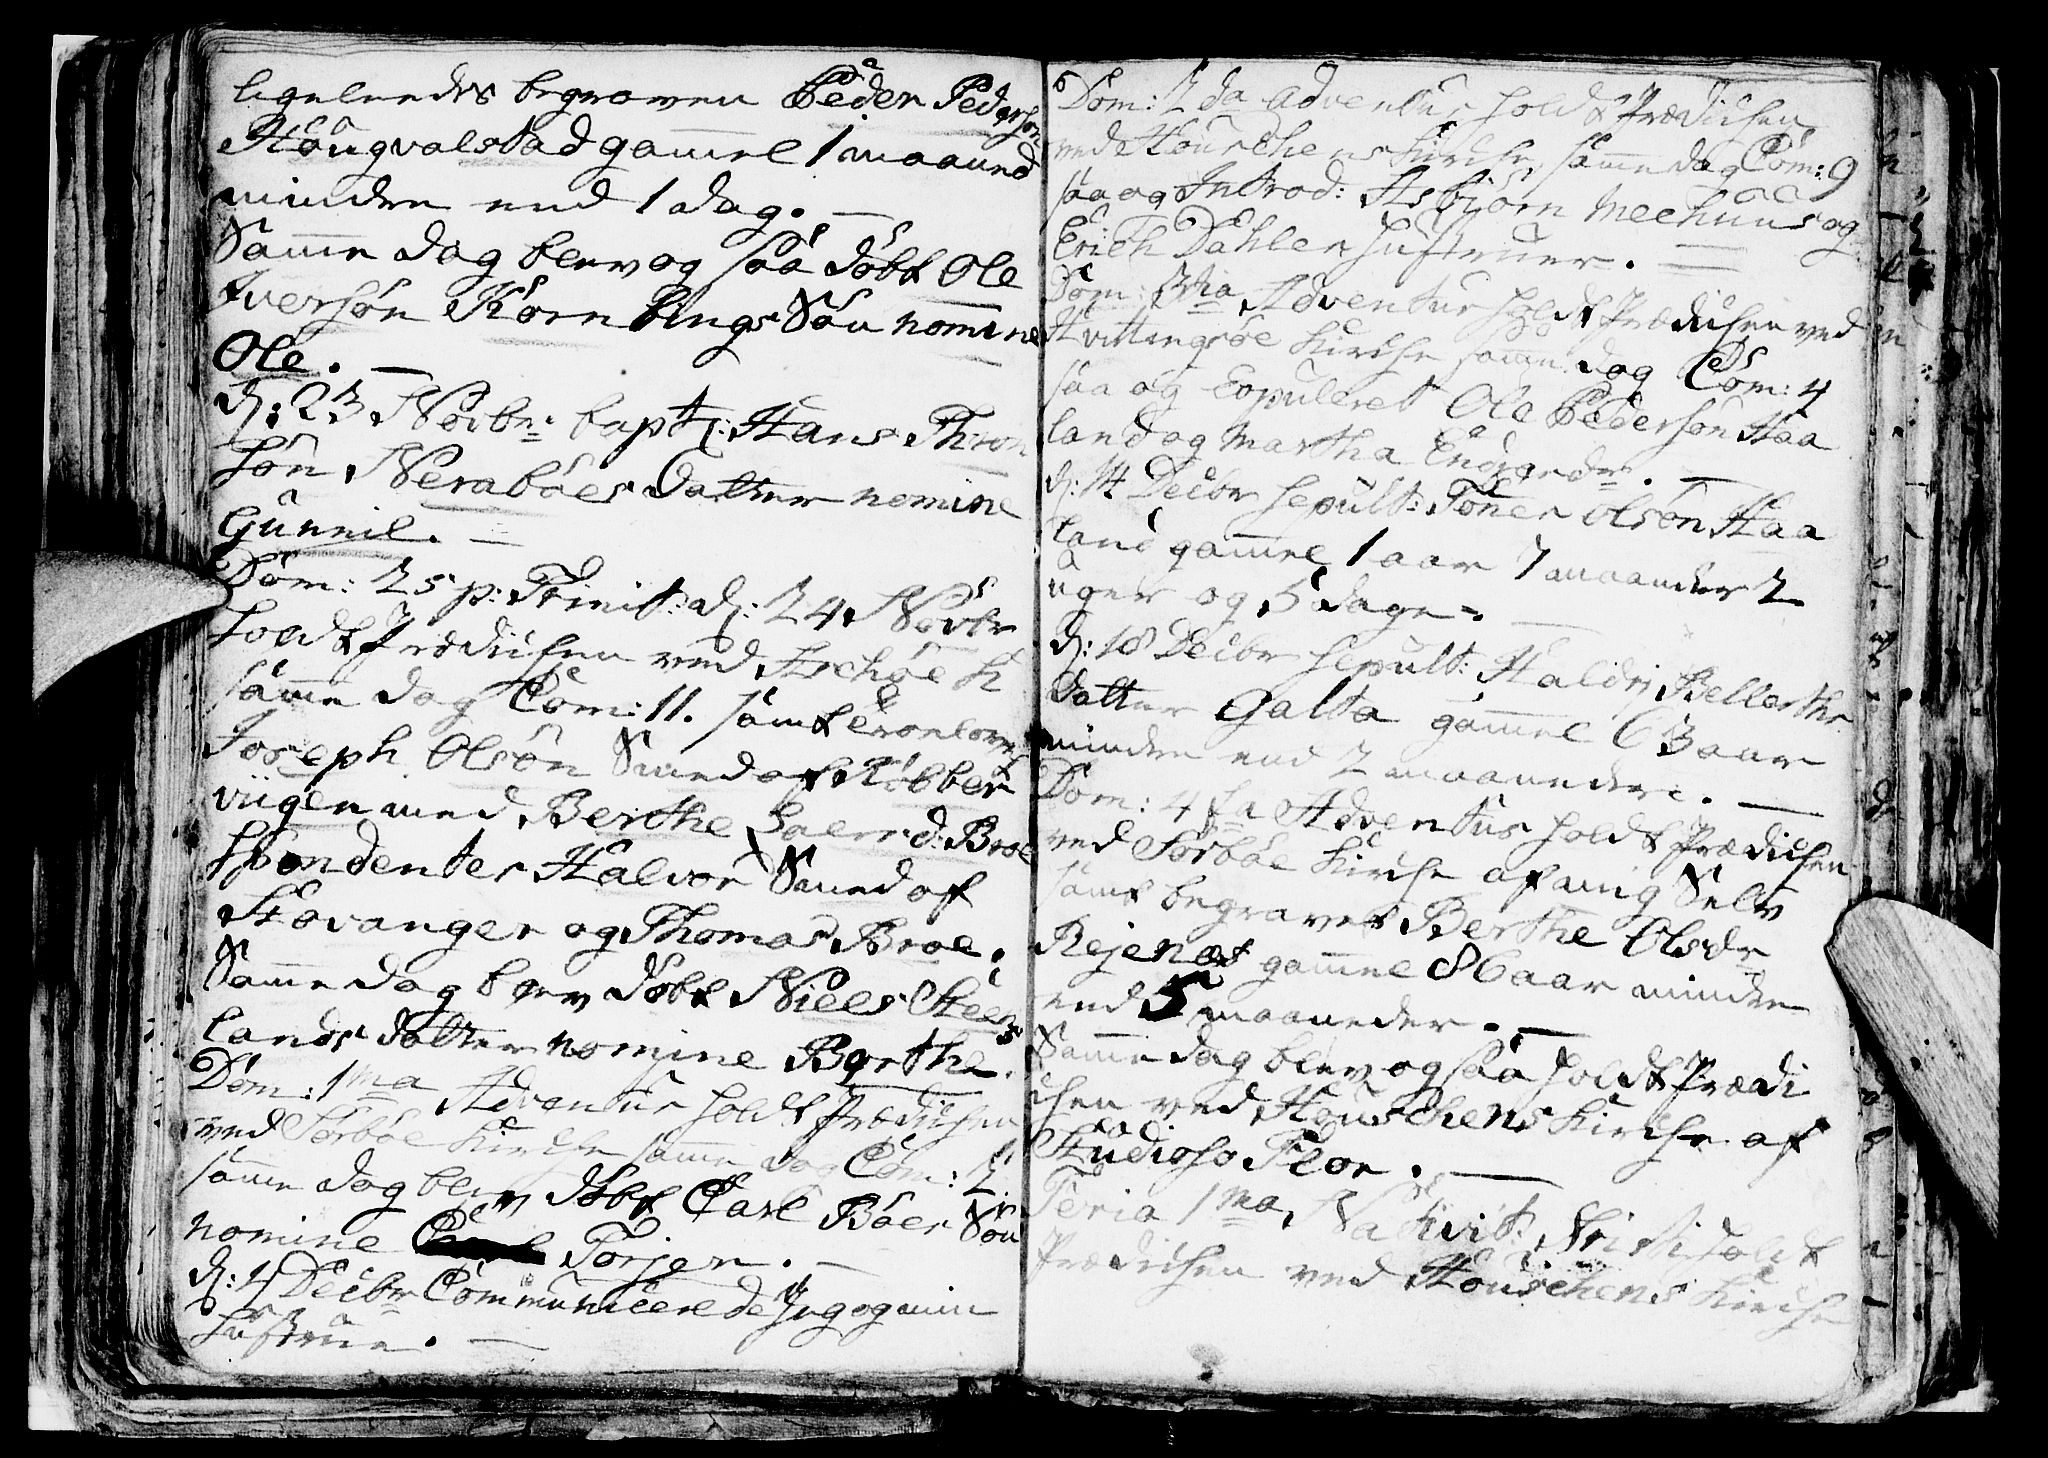 ligeleedes begraven Peder Pedersøn
Haugvalstad gamel 1 maaned
minder end 1 dag. —
Samme dag blev og saa døbt Ole
Iversøn Kornbings Søn nomine
Ole. —
d: 23 Novbr: bapt: Hans Thron
søn Nerabøes datter nomine
Gunnil. —
Dom: 25 p: Trinit: d: 24 Novbr
holdt Prædichen ved Aschøe K
samme dag Com: 11. samt
Joseph Olsøn Smed af Kobber
viigen med Berthe d: Broe
spondenter Halvor Smed af
Stavanger og Thomas Broe.
Samme dag blev døbt Niels
lands datter nomine Berthe.
Dom: 1ma Adventus holdt Prædichen
ved Sørbøe Kirche samme dag Com:
samme dag blev døbt Carl Bøes Søn
nomine Torjer. —
d: 4 Decbr Communicerede Jeg og min
hustrue. —
Dom: 2da Adventus holdt Prædichen
ved Houschens Kirche, samme dag Com: 9
saa og Introd: Asbiørn Meehuus og
Erich Dahles hustruer. —
Dom: 3tia Adventus holdt Prædichen ved
Hvittingsøe Kirche samme dag Com: 4
saa og Copuleret Ole Pedersøn Haa
land og Martha. —
d: 14 Decbr sepult: Tønes Olsøn Haa
land gamel 1 aar 7 maaneder 2
uger og 5 dage. —
d: 18 Decbr sepult: Haldis
datter Galta gamel 63 aar
minder end 2 maaneder. —
Dom: 4ta Adventus holdt Prædichen
ved Sørbøe Kirche af mig Selv
samt begravet Berthe Olsdr
Rejenæs gamel 86 aar minder
end 5 maaneder. —
Samme dag blev og saa holdt Prædi
chen ved Houschens Kirche af
Studioso Flor. —
Feria 1ma Nativit: Christi holdt
Prædichen ved Houschens Kirche